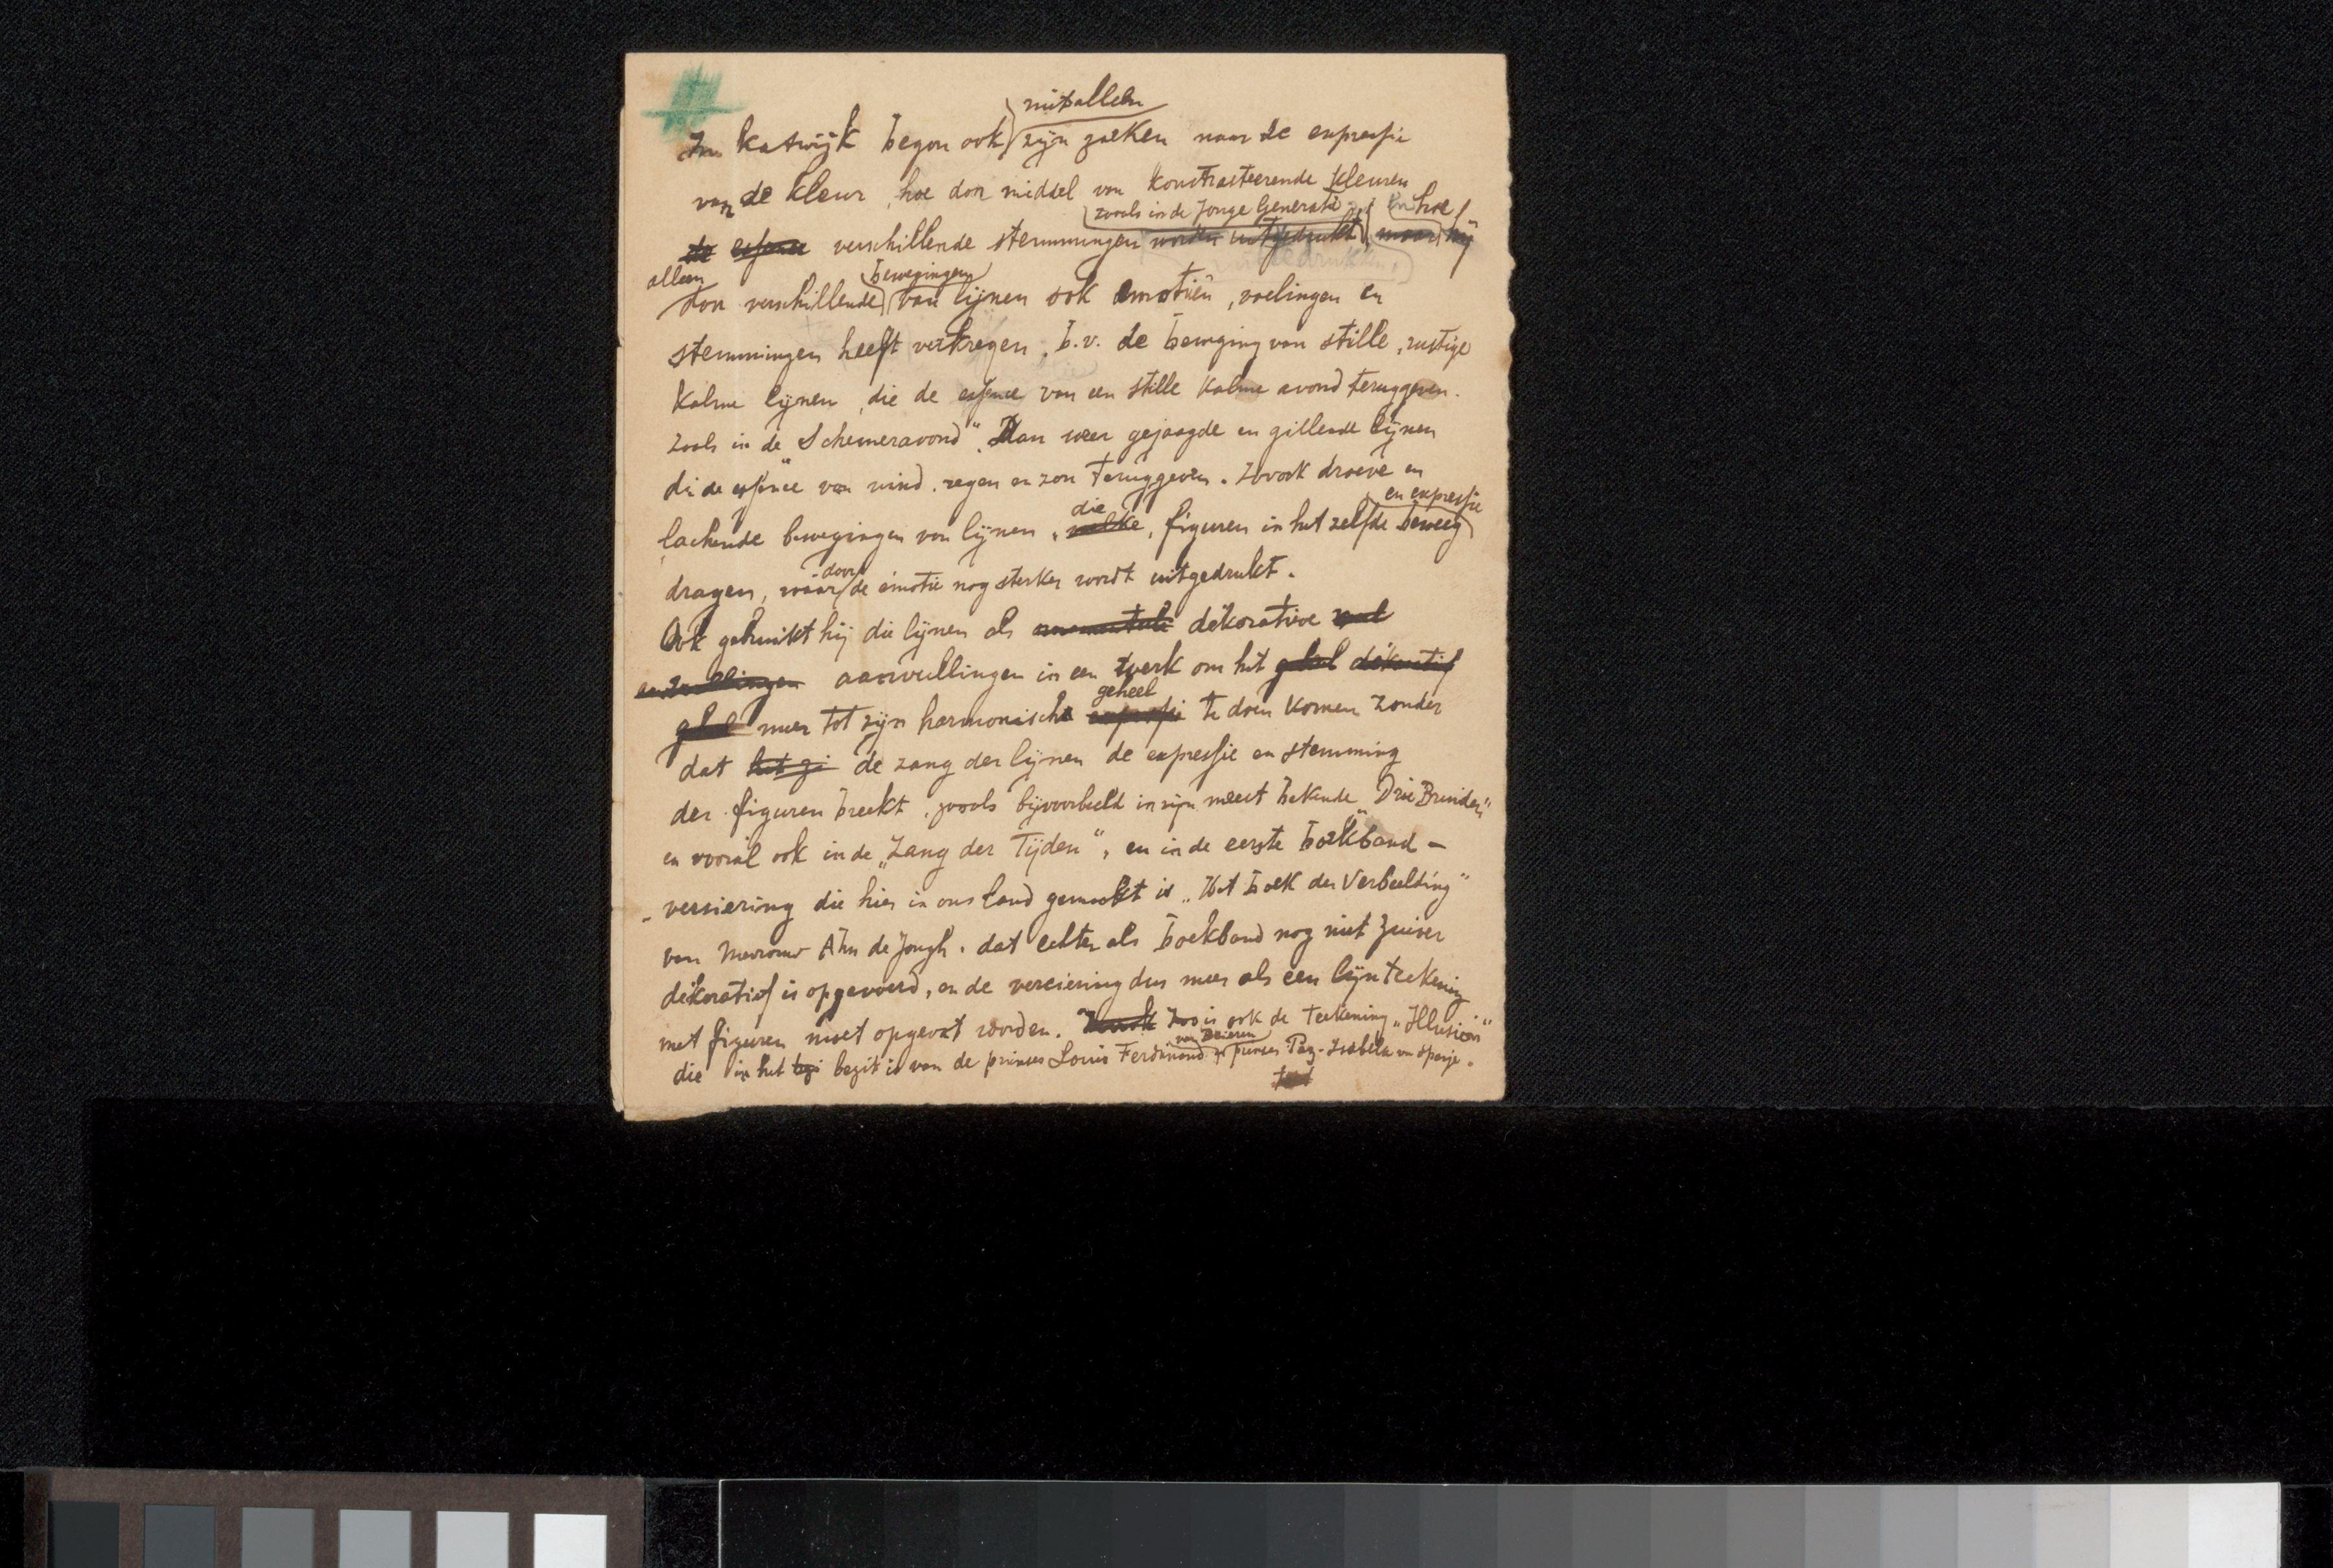 niet alleen
In Katwijk begon ook zijn zoeken naar de expressie
van de kleur, hoe door middel van konstrasteerende kleuren
zooals in de Jonge Generatie en hoe
de essence verschillende stemmingen worden uitgedrukt maar hij
alleen bewegingen
door verschillende van lijnen ook emotiën, voelingen en
stemmingen heeft verkregen, b.v. de beweging van stille, rustige
kalme lijnen, die de essence van een stille kalme avond teruggeven.
zooals in de „Schemeravond". Dan weer gejaagde en gillende lijnen
die de essence van wind, regen en zon teruggeven. Zoo ook droeve en
die en expressie
lachende bewegingen van lijnen, welke, figuren in het zelfde beweeg
door
dragen, waar de emotie nog sterker wordt uitgedrukt.
Ook gebruikt hij die lijnen als ornementale dékoratieve
aanvullingen aanvullingen in een werk om het geheel dékoratief
geheel
geheel meer tot zijn harmonische expressie te doen komen zonder
dat het zi de zang der lijnen de expressie en stemming
der figuren breekt, zooals bijvoorbeeld in zijn meest bekende „Drie Bruiden"
en vooral ook in de „Zang der Tijden", en in de eerste boekband -
- versiering die hier in ons land gemaakt is „Het boek der Verbeelding"
van Mevrouw Ahn de Jongh. dat echter als boekband nog niet zuiver
dékoratief is opgevoerd, en de verciering dus meer als een lijnteekening
met figuren moet opgevat worden. Zoo ook Zoo is ook de teekening „Illusioin"
van Beieren
die in het bezi bezit is van de prinses Louis Ferdinand prinses Paz-Isabela van Spanje.